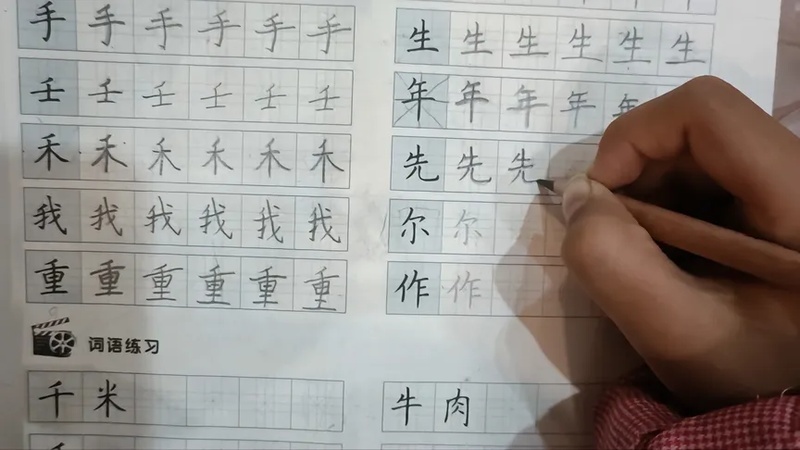 手手手手手手
壬壬壬壬壬壬
禾禾禾禾禾禾
我我我我我我
重重重重重重
词语练习
千米
生生生生生生
年年年年年
先先先
尔尔
作作
牛肉